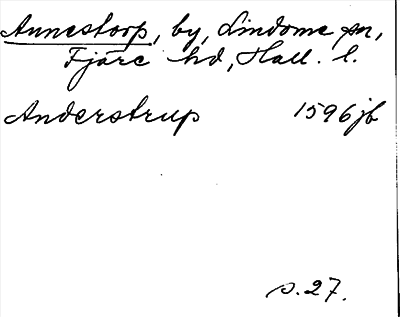 Annestorp, by, Lindome sn,
Fjäre hd, Hall. l.
Anderstrup 1596 jb
s. 27.